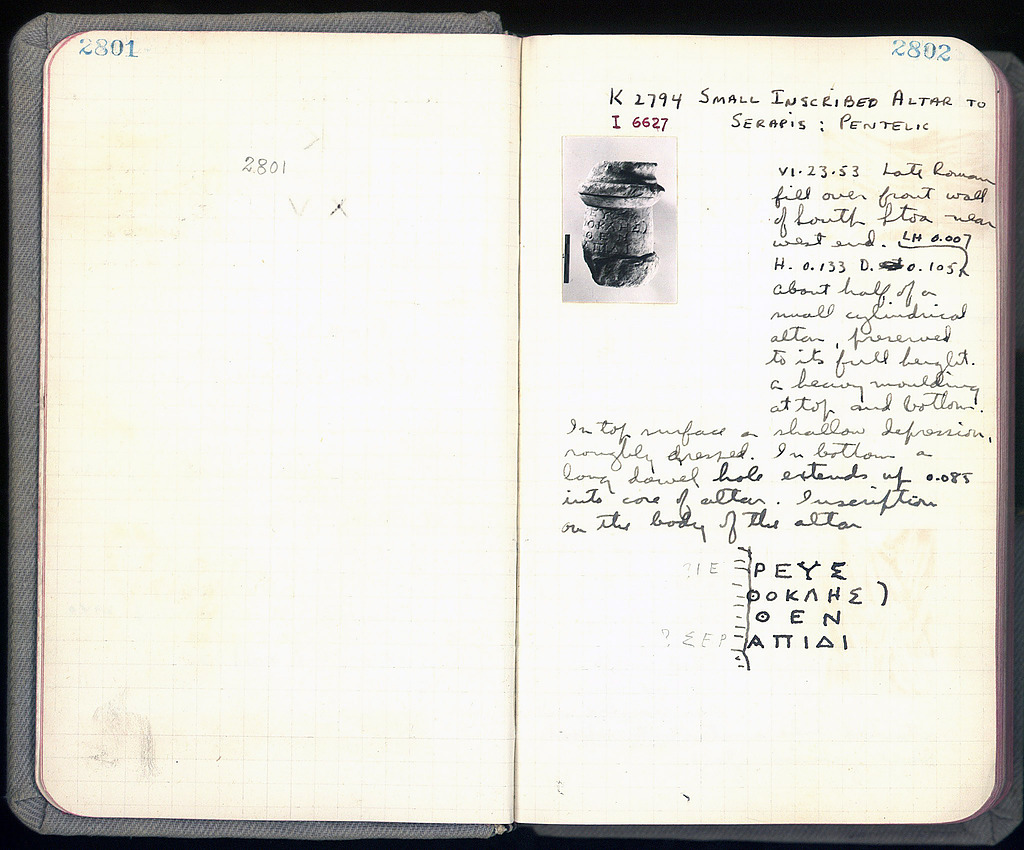 2801
2801
V X
2802
K 2794 SMALL INSCRIBED ALTAR TO
I 6627 SERAPIS : PENTELIC
VI·23·53 Late Roman
fill over front wall
of South Stoa near
west end. LH 0.007
H. 0.133 D. 0.105
about half of a
small cylindrical
altar, preserved
to its full height.
a heavy moulding
at top and bottom.
In top surface a shallow depression,
roughly dressed. In bottom a
long dowel hole extends up 0.085
into core of altar. Inscription
on the body of the altar
?ΙΕ ΡΕΥΣ
ΟΟΚΛΗΣ)
ΘΕΝ
? ΣΕΡ ΑΠΙΔΙ